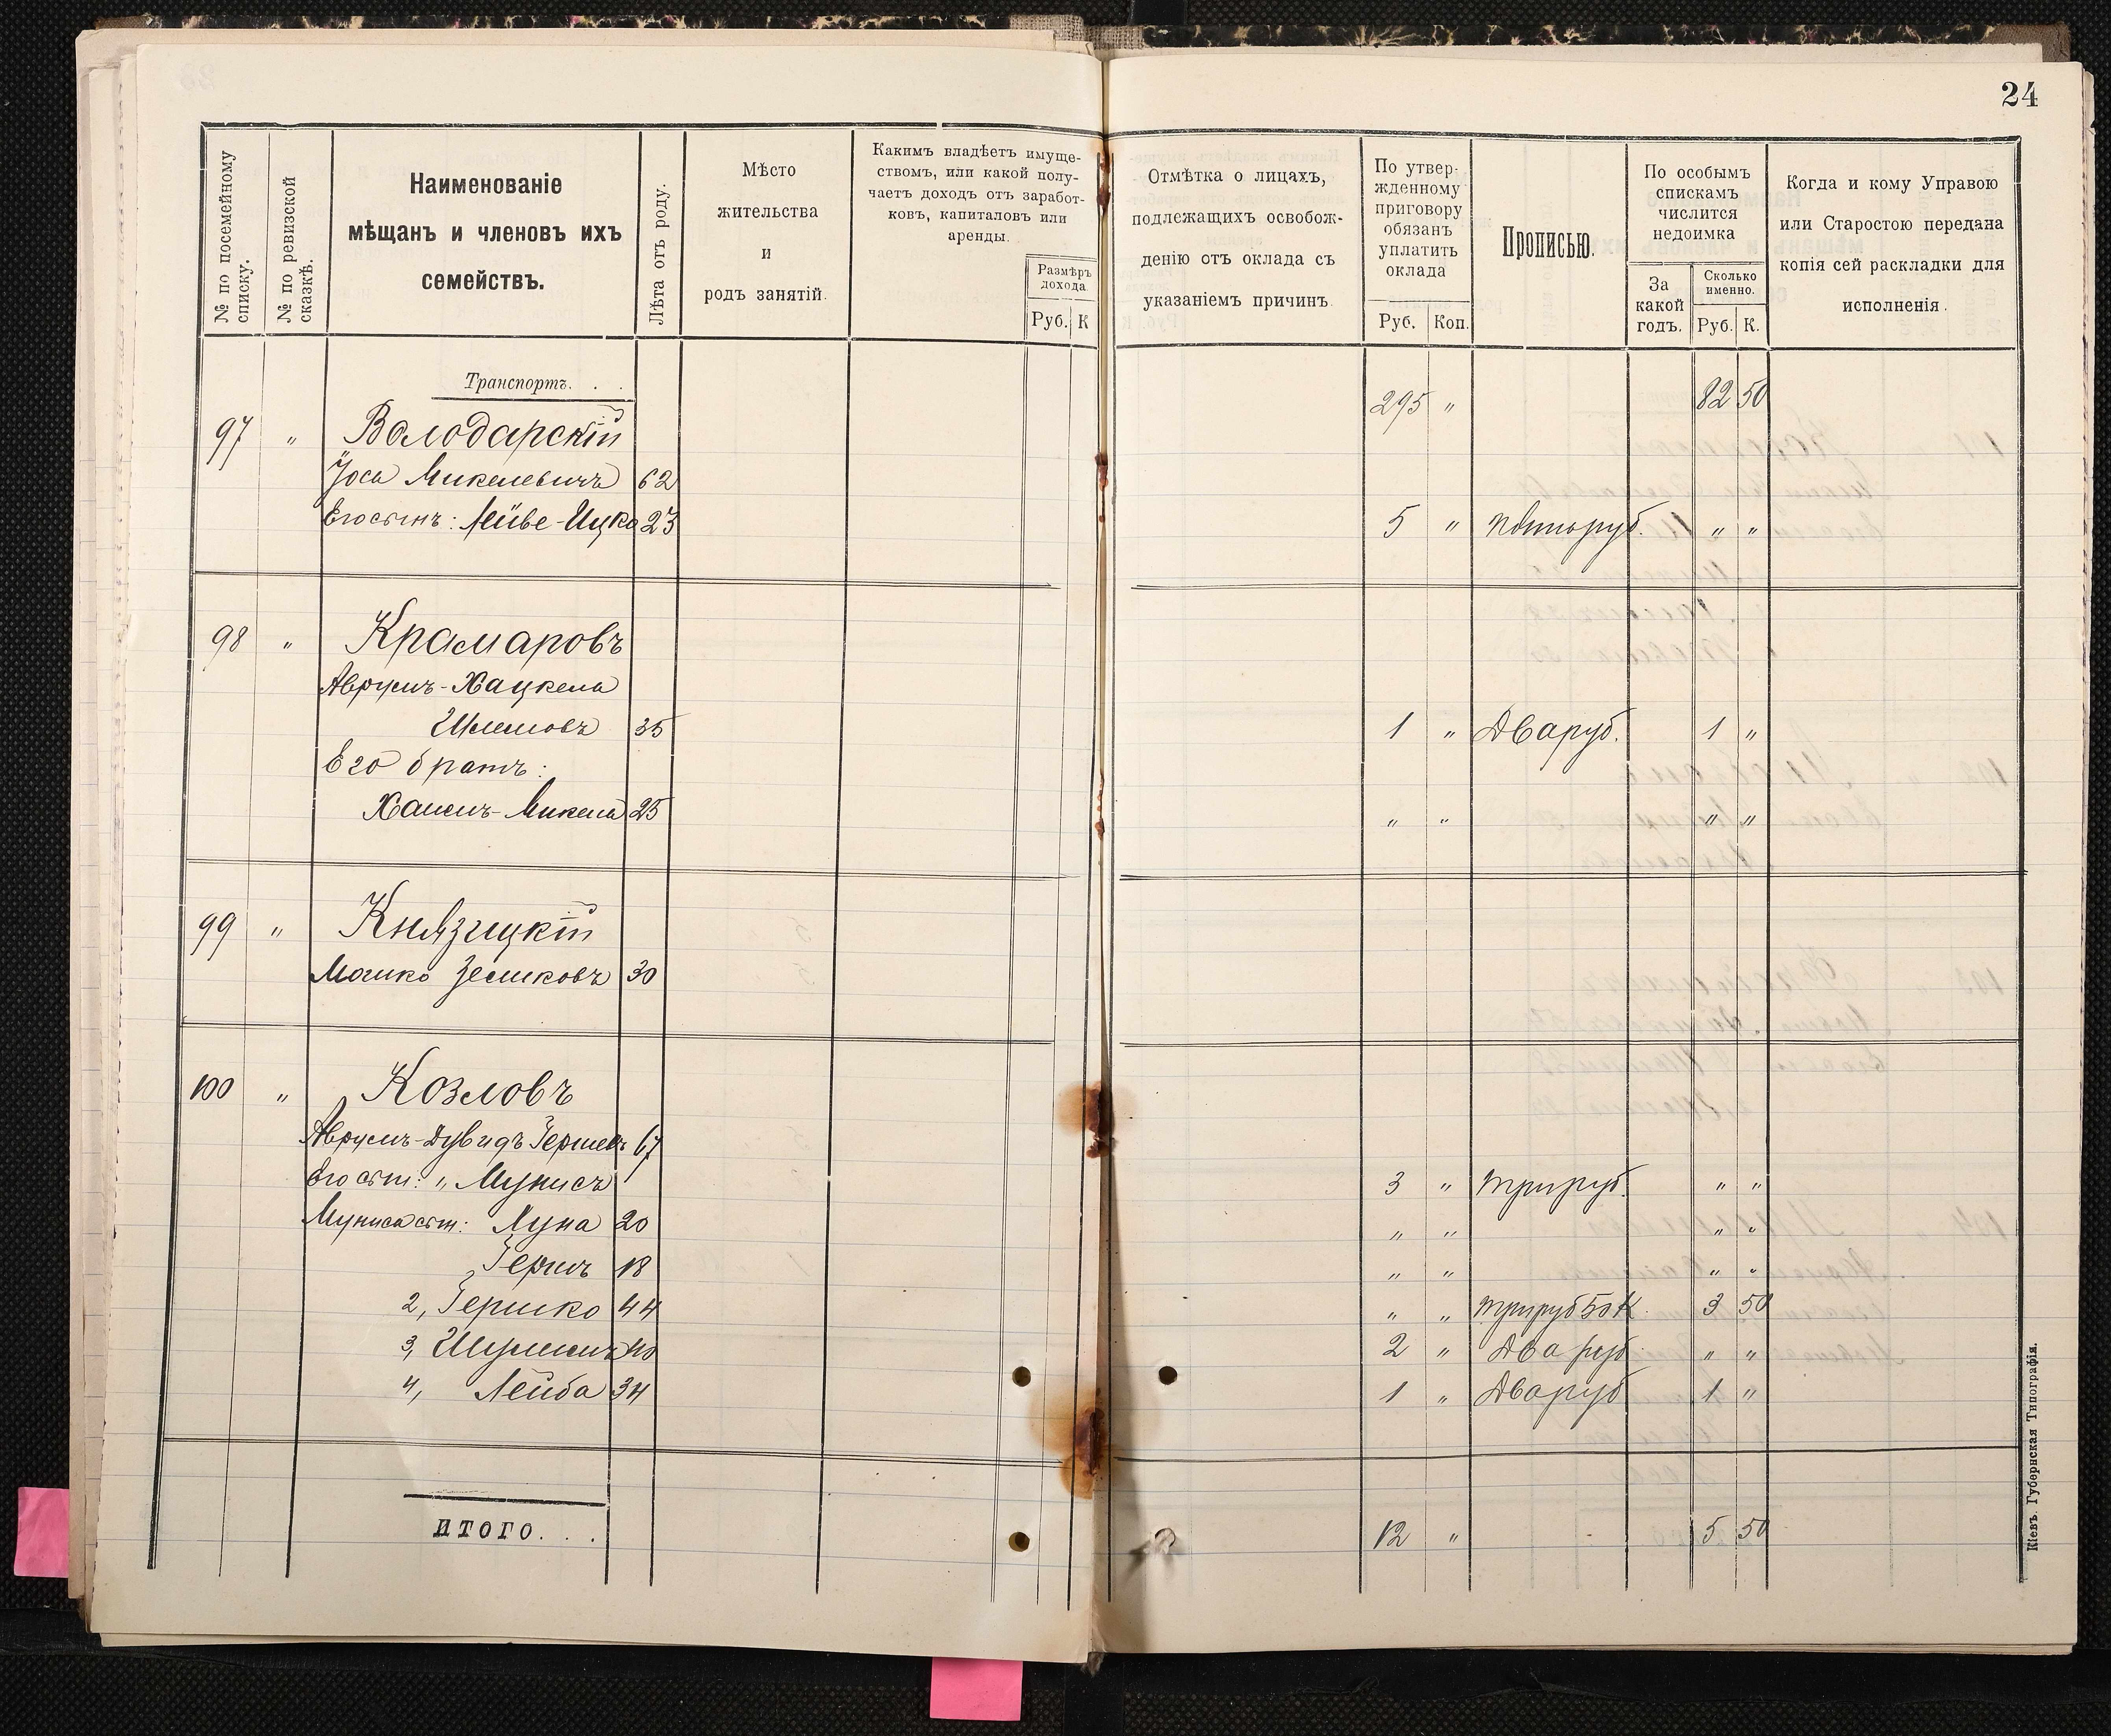 24
№ по посемейному списку.
№ по ревизской сказкѣ.
Наименованіе
мѣщанъ и членовъ ихъ
семействъ.
Лѣта отъ роду.
Мѣсто
жительства
и
родъ занятій.
Какимъ владѣетъ имуще-
ствомъ, или какой полу-
чаетъ доходъ отъ заработ-
ковъ, капиталовъ или
аренды.
Размѣръ
дохода.
Руб. К
Отмѣтка о лицахъ,
подлежащихъ освобож-
денію отъ оклада съ
указаніемъ причинъ.
По утвер-
жденному
приговору
обязанъ
уплатить
оклада
Руб. Коп.
Прописью.
По особымъ
спискамъ
числится
недоимка
За
какой
годъ.
Сколько
именно.
Руб. К.
Когда и кому Управою
или Старостою передана
копія сей раскладки для
исполненія.
Транспортъ. . . 295 " 82 50
97 " Володарскій
Іось Михелевичъ 62
Его сынъ: Лейбе-Ицко 23 5 " пять руб. " "
98 " Крамаровъ
Аврумъ-Хацкель
Шлемовъ 35 1 " Два руб. 1 "
Его братъ:
Хаимъ-Михель 25 " " " "
99 " Князицкій
Мошко Зеликовъ 30
100 " Козловъ
Аврумъ-Дувидъ Гершевъ 67
Его сын: " Мунисъ 3 " три руб. " "
Муниса сын: Луна 20 " " " "
Гершъ 18 " " " "
2, Гершко 44 " " три руб 50 К. 3 50
3, 40 2 " Два руб " "
4, Лейба 34 1 " Два руб 1 "
ИТОГО. . . 12 " 5 50
Кіевъ. Губернская Типографія.